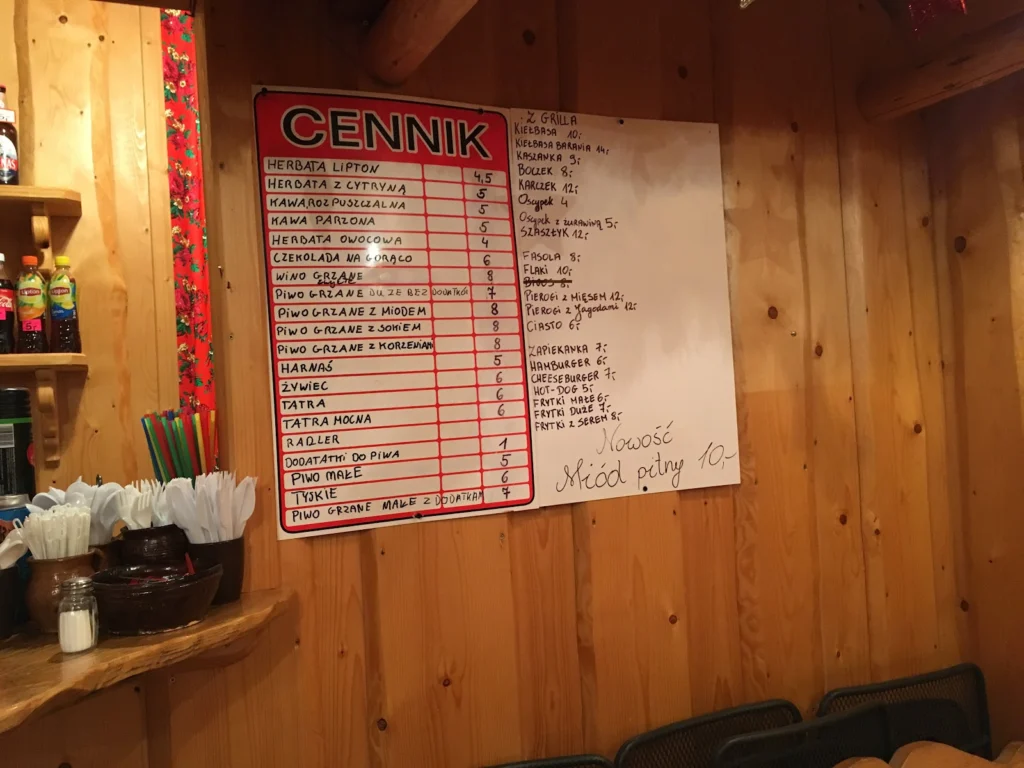 CENNIK
HERBATA LIPTON 4,5
HERBATA Z CYTRYNĄ 5
KAWA ROZPUSZCZALNA 5
KAWA PARZONA 5
HERBATA OWOCOWA 4
CZEKOLADA NA GORĄCO 6
WINO GRZANE 8
PIWO GRZANE DUŻE BEZ DODATKÓW 7
PIWO GRZANE Z MIODEM 8
PIWO GRZANE Z SOKIEM 8
PIWO GRZANE Z KORZENIAMI 8
HARNAŚ 5
ŻYWIEC 6
TATRA 6
TATRA MOCNA 6
RADLER
DODATATKI DO PIWA 1
PIWO MAŁE 5
TYSKIE 6
PIWO GRZANE MAŁE Z DODATKAM 7
Z GRILLA
KIEŁBASA 10,-
KIEŁBASA BARANIA 14,-
KASZANKA 9,-
BOCZEK 8,-
KARCZEK 12,-
Oscypek 4
Oscypek z żurawiną 5,-
SZASZŁYK 12,-
FASOLA 8,-
FLAKI 10,-
BIGOS 8,-
PIEROGI Z MIĘSEM 12,-
PIEROGI z Jagodami 12,-
CIASTO 6,-
ZAPIEKANKA 7,-
HAMBURGER 6,-
CHEESEBURGER 7,-
HOT-DOG 5,-
FRYTKI MAŁE 6,-
FRYTKI DUŻE 7,-
FRYTKI Z SEREM 8,-
Nowość
Miód pitny 10,-
Lipton
Lipton